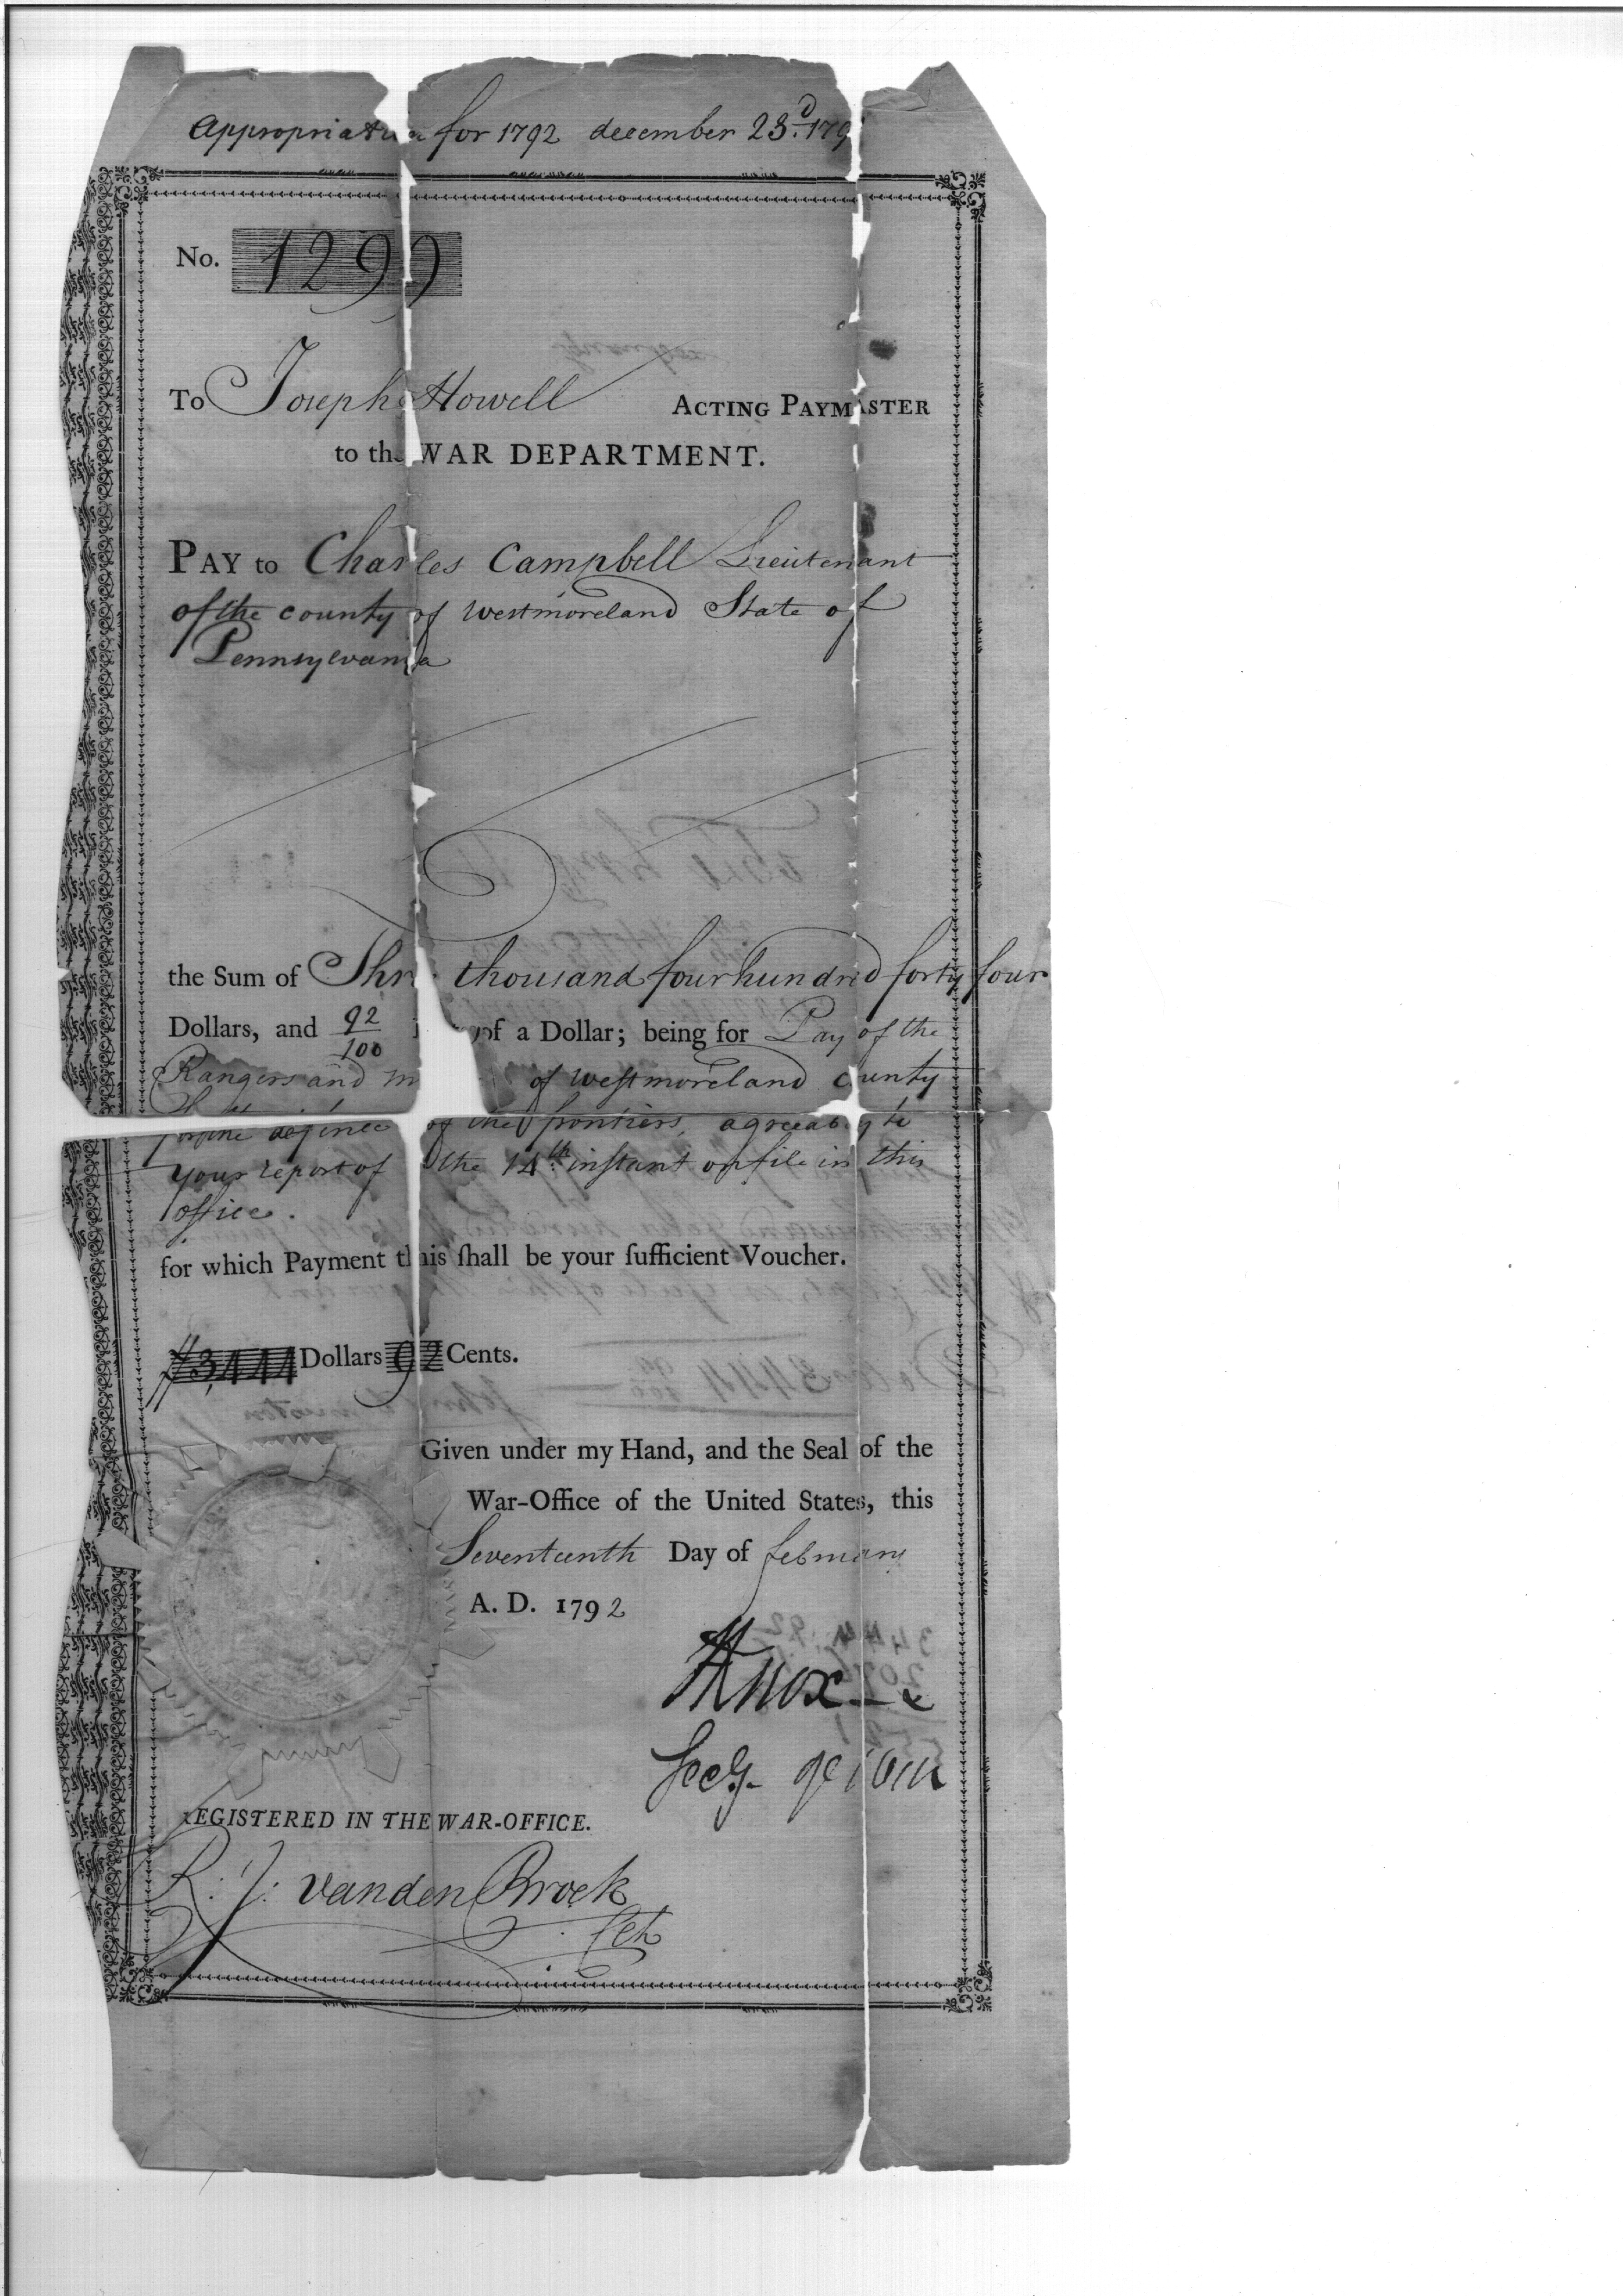 Appropriation for 1792 december 23d. 179
No. 1299
To Joseph Howell ACTING PAYMASTER
to the WAR DEPARTMENT.
PAY to Charles Campbell Lieutenant
of the county of Westmoreland State of
Pennsylvania
the Sum of Thre thousand four hundred forty four
Dollars, and 92/100 of a Dollar; being for Pay of the
Rangers and m of Westmoreland county
for the defence of the frontiers, agreeably to
your report of the 14th instant on file in this
office.
for which Payment this ſhall be your ſufficient Voucher.
3,444 Dollars 92 Cents.
Given under my Hand, and the Seal of the
War-Office of the United States, this
Seventeenth Day of february
A. D. 1792
HKnox
Secy. of War
REGISTERED IN THE WAR-OFFICE.
R: J: vanden Broek